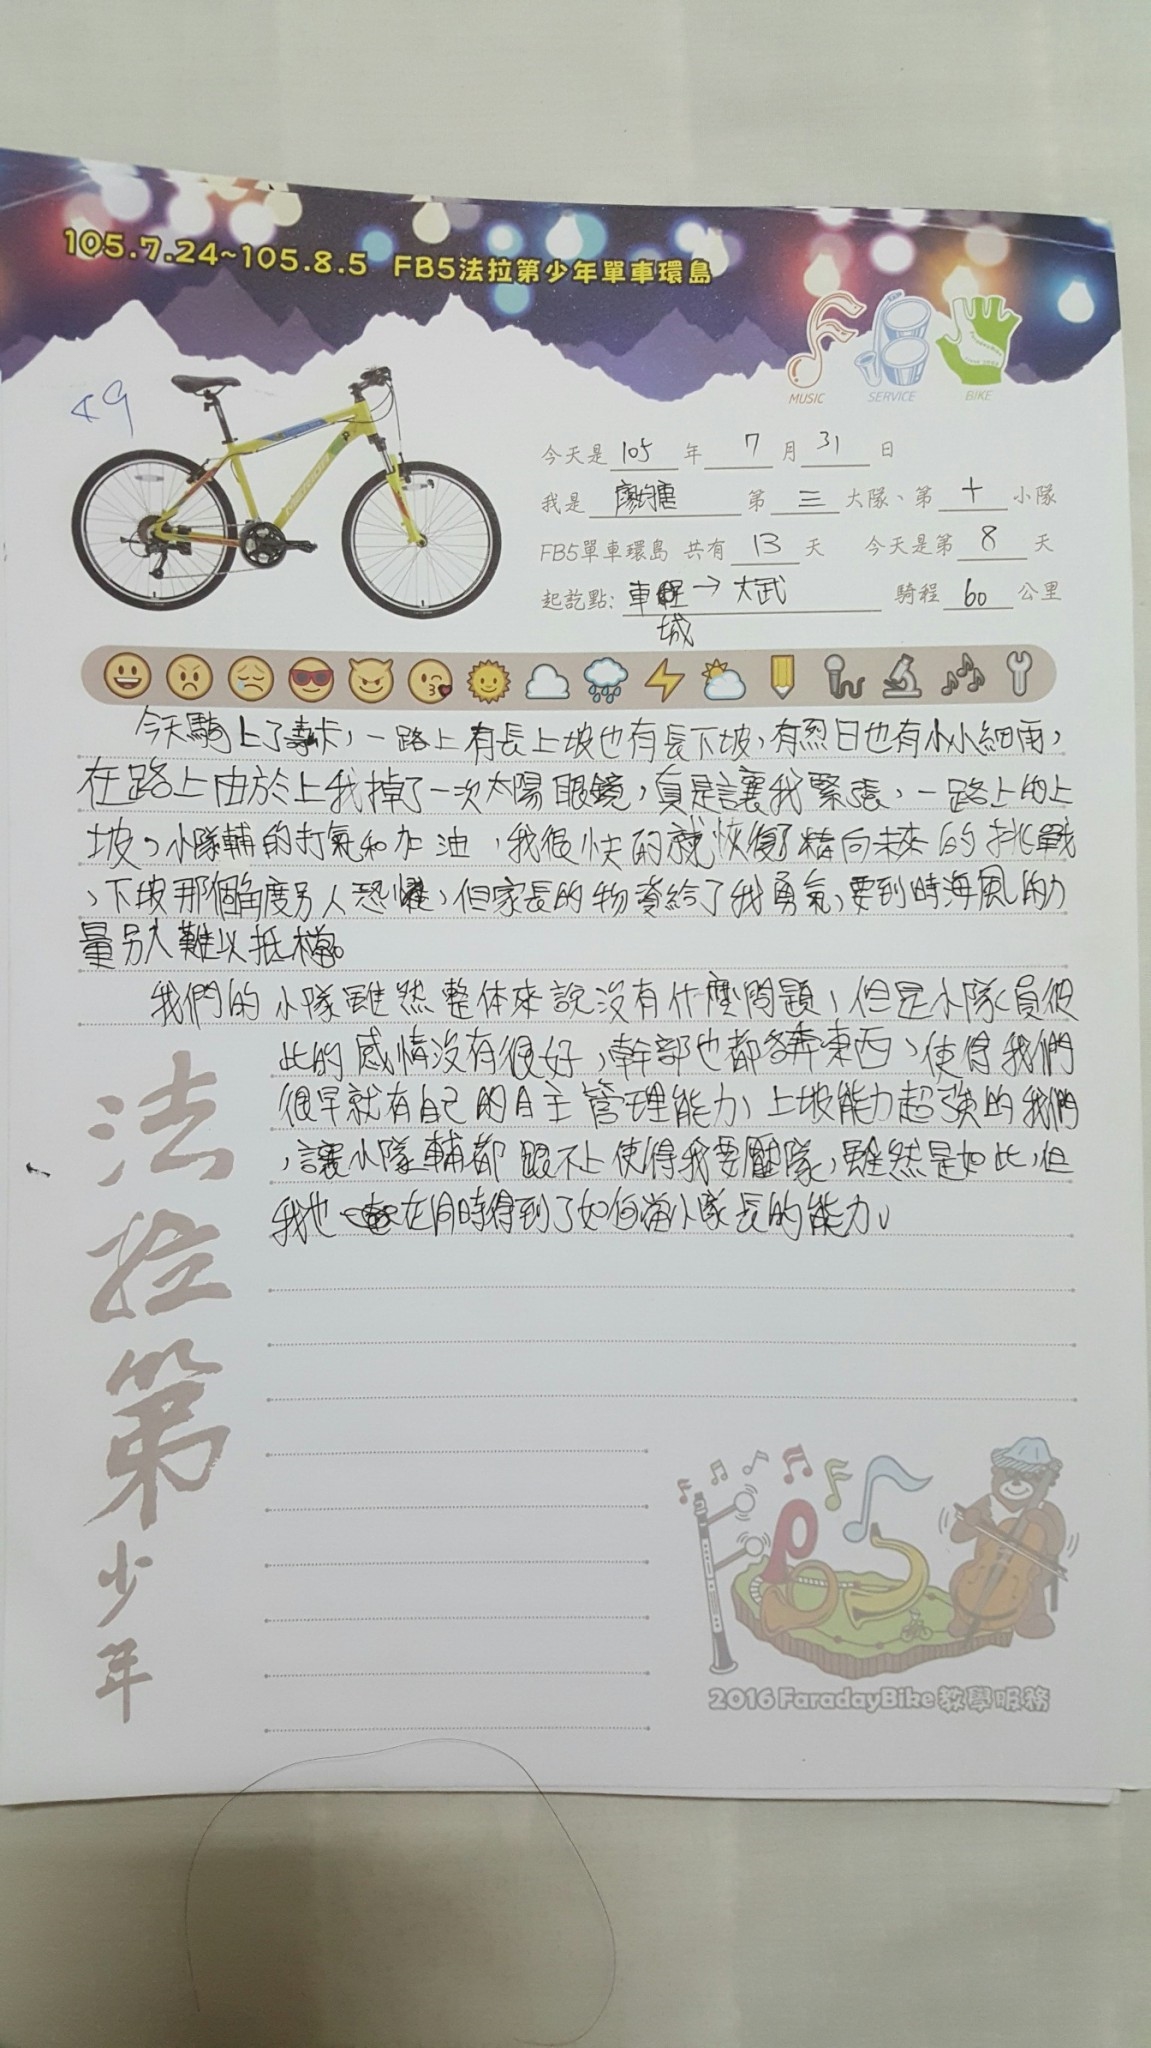 105.7.24~105.8.5 FB5法拉第少年單車環島
MUSIC SERVICE BIKE
今天是 105 年 7 月 31 日
我是 廖 第 三 大隊、第 十 小隊
FB5單車環島 共有 13 天 今天是第 8 天
起訖點: 車 → 大武 騎程 60 公里
城
今天騎上了壽卡,一路上有長上坡也有長下坡,有烈日也有小小細雨,
在路上由於上我掉了一次太陽眼鏡,真是讓我緊張,一路上的上
坡,小隊輔的打氣和加油,我很快的就恢復了精向未來的挑戰
、下坡那個角度另人恐懼,但家長的物資給了我勇氣,要到時海風的力
量另人難以抵擋。
我們的小隊雖然整体來說沒有什麼問題,但是小隊員彼
此的感情沒有很好,幹部也都各奔東西、使得我們
很早就有自己的自主管理能力、上坡能力超強的我們
,讓小隊輔都跟不上使得我要壓隊,雖然是如此,但
我也在同時得到了如何當小隊長的能力。
法拉第少年
2016 FaradayBike教學服務